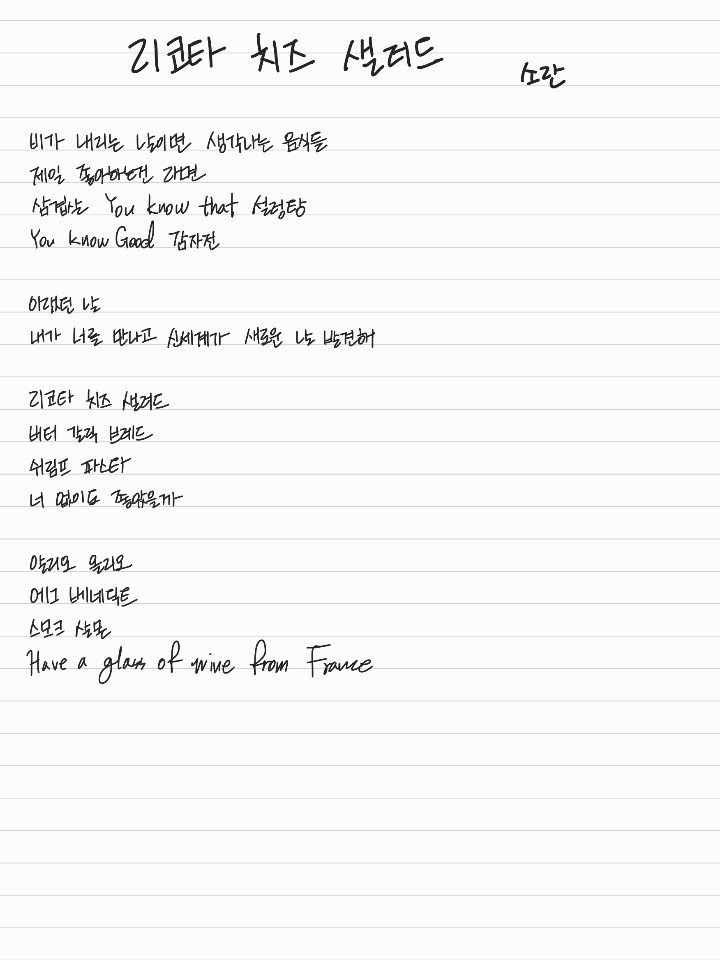 리코타 치즈 샐러드
소란
비가 내리는 날이면 생각나는 음식들
제일 좋아하던건 라면
삼겹살 You know that 설렁탕
You know Good 감자전
이랬던 날
내가 너를 만나고 신세계가 새로운 날 발견해
리코타 치즈 샐러드
버터 갈릭 브레드
쉬림프 파스타
너 없이도 좋았을까
알리오 올리오
에그 베네딕트
스모크 살몬
Have a glass of wine from France